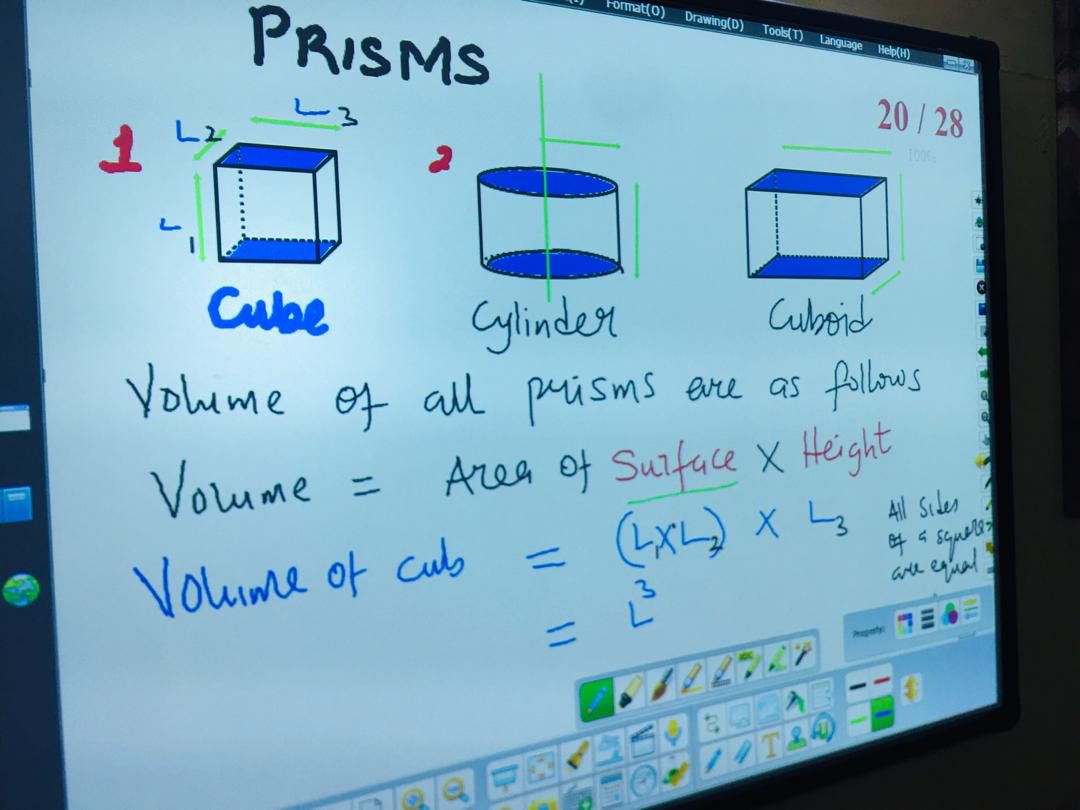 Format(O) Drawing(D) Tools(T) Language Help(H)
PRISMS
20 / 28
100%
1
L2
L3
L1
2
Cube
Cylinder
Cuboid
Volume of all prisms are as follows
Volume = Area of Surface X Height
Volume of cub = (L1XL2) X L3
= L3
All Sides
of a square
are equal
Property: